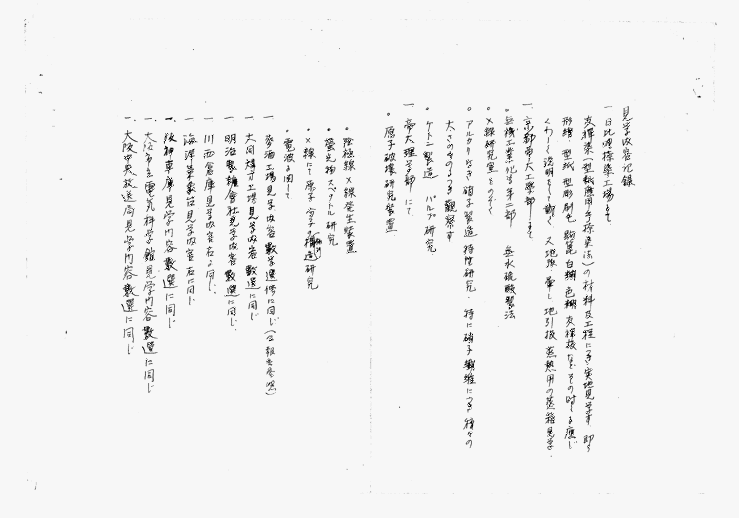 見学内容記録
一、日比理捺染工場にて
友禅染(型紙応用手捺染法)の材料及工程につき実地見学す 即ち
形繪 型紙 型彫刻 色糊 白糊 色糊 友禅板など その時々に応じ
くわしく説明をして頂く 又地張 暈し 地引扱 蒸熱用の蒸箱見学、
一、京都帝大工学部にて
無水硫酸製法
・X線研究室をのぞく
・アルカリなき硝子製造 特殊研究、特に硝子繊維につき種々の
太さのものにつき観察す
・ケトン製造 パルプ研究
一、帝大理学部にて
・原子破壊研究装置
・陰極線X線発生装置
・螢光物スペクトル研究
・X線にて原子、分子の構造研究
・電波を用して
一、麥酒工場見学内容 數学選修に同じ(口報告参照)
一、大同燐寸工場見学内容 數選に同じ
一、明治製糖会社見学内容 數選に同じ、
一、川西倉庫見学内容右に同じ、
一、海洋気象台見学内容 右に同じ
一、阪神車庫見学内容 數選に同じ
一、大阪市立電気科学館見学内容 數選に同じ
一、大阪中央放送局見学内容 數選に同じ